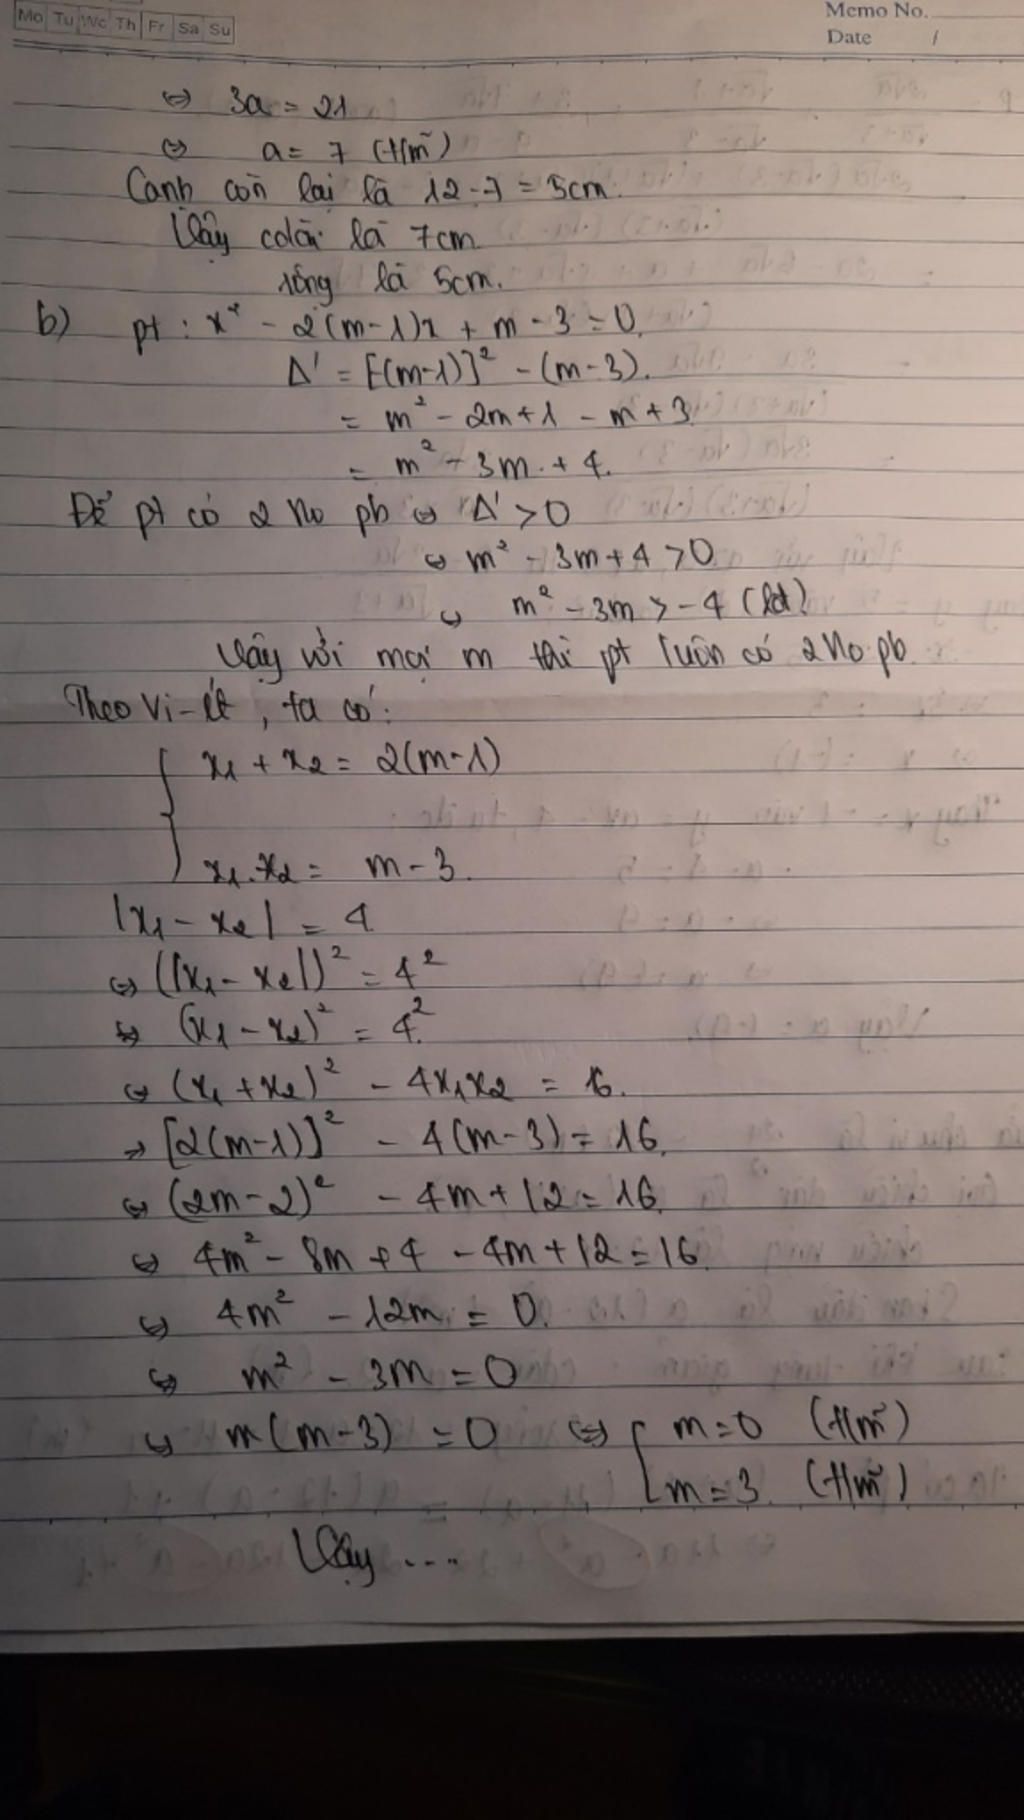 Mo Tu We Th Fr Sa Su
Memo No.
Date /
⇔ 3a = 21
⇔ a = 7 (t/m)
Cạnh còn lại là 12 - 7 = 5cm.
Vậy cdài là 7cm
rông là 5cm.
b) pt : x² - 2(m-1)x + m - 3 = 0.
Δ' = [-(m-1)]² - (m-3).
= m² - 2m + 1 - m + 3
= m² - 3m + 4.
Để pt có 2 No pb ⇔ Δ' > 0
⇔ m² - 3m + 4 > 0
⇔ m² - 3m > -4 (lđ)
Vậy với mọi m thì pt luôn có 2 No pb.
Theo Vi-ét, ta có:
x₁ + x₂ = 2(m-1)
x₁.x₂ = m - 3.
|x₁ - x₂| = 4
⇔ (|x₁ - x₂|)² = 4²
⇔ (x₁ - x₂)² = 4²
⇔ (x₁ + x₂)² - 4x₁x₂ = 16.
⇒ [2(m-1)]² - 4(m-3) = 16.
⇔ (2m-2)² - 4m + 12 = 16.
⇔ 4m² - 8m + 4 - 4m + 12 = 16
⇔ 4m² - 12m = 0.
⇔ m² - 3m = 0
⇔ m(m-3) = 0 ⇔ [ m = 0 (t/m)
m = 3 (t/m)
Vậy ....